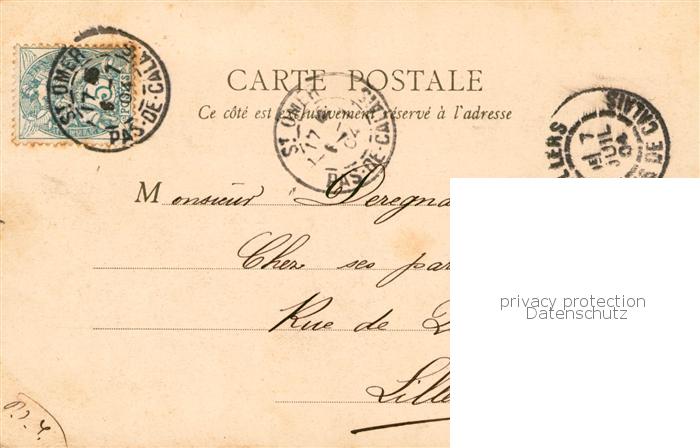 ST OMER
PAS-DE-CALAIS
CARTE POSTALE
Ce côté est exclusivement réservé à l'adresse
ST OMER
17
04
PAS-DE-CALAIS
LLERS
7
JUIL
04
DE CALAIS
Monsieur Deregna
Chez ses par
Rue de
Lille
privacy protection
Datenschutz